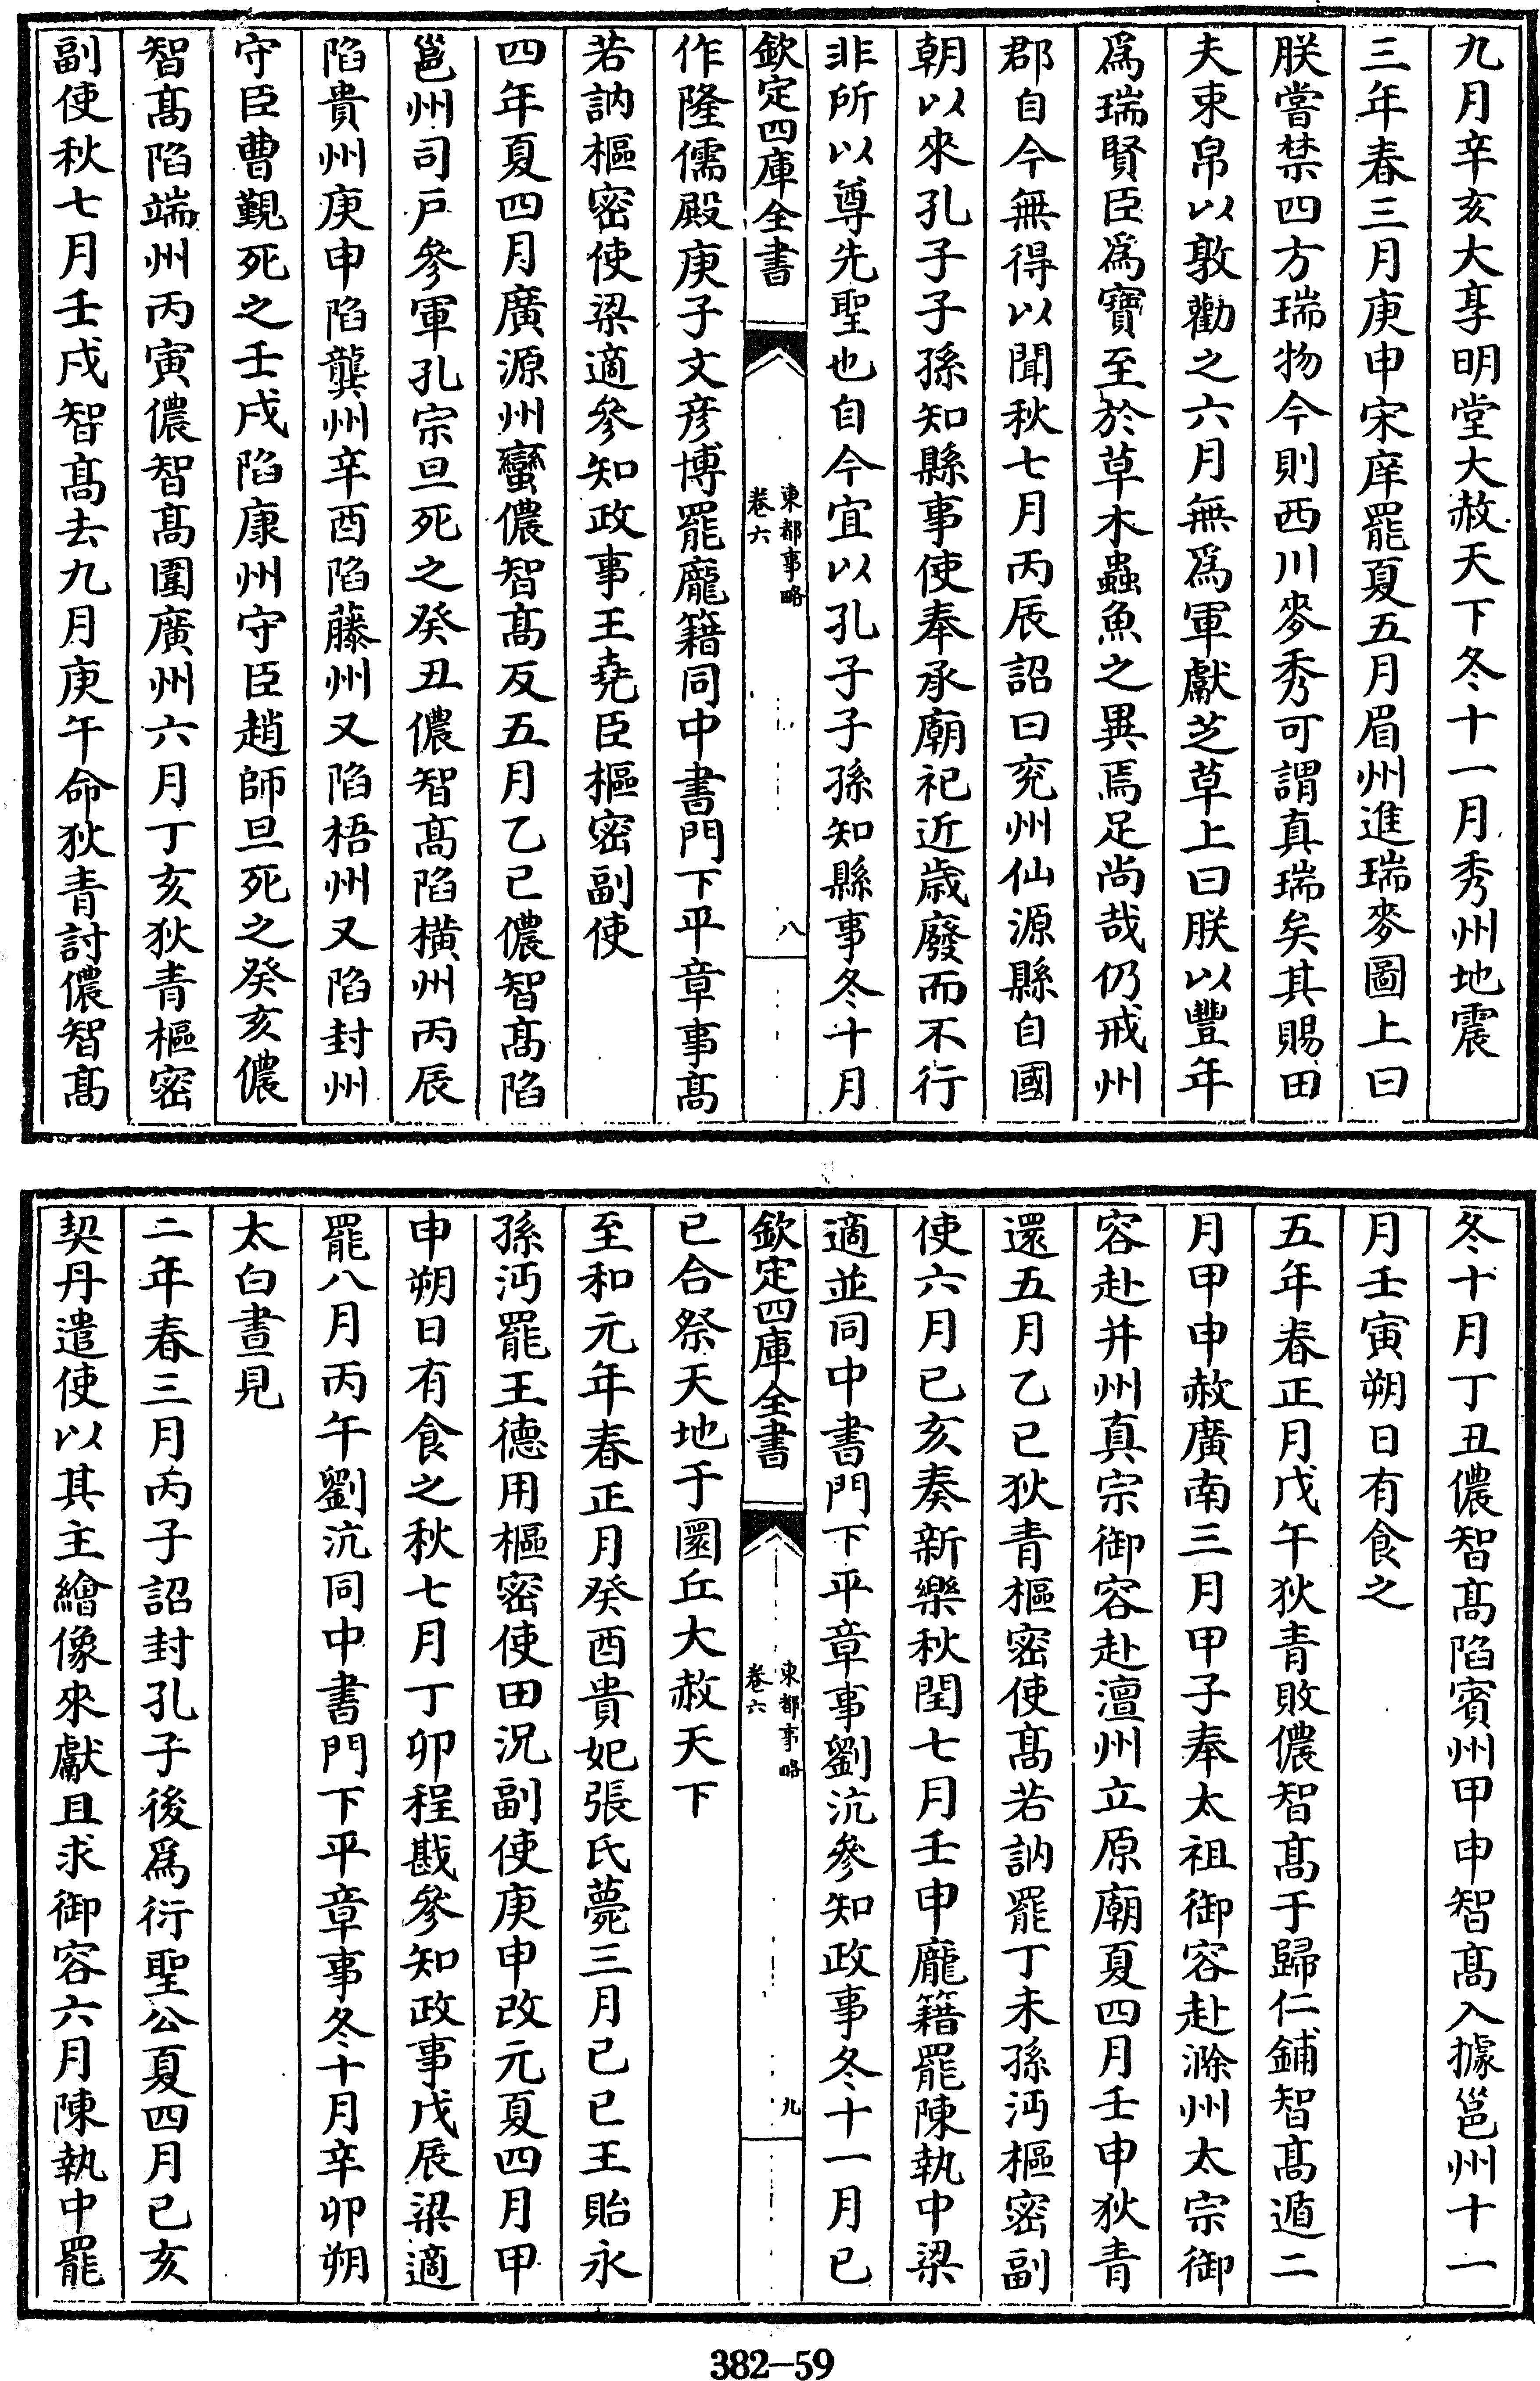 九月辛亥大享明堂大赦天下冬十一月秀州地震
三年春三月庚申宋庠罷夏五月眉州進瑞麥圖上曰
朕嘗禁四方瑞物今則西川麥秀可謂真瑞矣其賜田
夫束帛以敦勸之六月無爲軍獻芝草上曰朕以豐年
爲瑞賢臣爲寶至於草木蟲魚之異焉足尚哉仍戒州
郡自今無得以聞秋七月丙辰詔曰兖州仙源縣自國
朝以來孔子子孫知縣事使奉承廟祀近歳廢而不行
非所以尊先聖也自今宜以孔子子孫知縣事冬十月
欽定四庫全書
東都事略
卷六
八
作隆儒殿庚子文彦博罷龐籍同中書門下平章事髙
若訥樞密使梁適參知政事王堯臣樞密副使
四年夏四月廣源州蠻儂智髙反五月乙巳儂智髙陷
邕州司戶參軍孔宗旦死之癸丑儂智髙陷橫州丙辰
陷貴州庚申陷龔州辛酉陷藤州又陷梧州又陷封州
守臣曹覲死之壬戌陷康州守臣趙師旦死之癸亥儂
智髙陷端州丙寅儂智髙圍廣州六月丁亥狄青樞密
副使秋七月壬戌智髙去九月庚午命狄青討儂智髙
冬十月丁丑儂智髙陷賓州甲申智髙入據邕州十一
月壬寅朔日有食之
五年春正月戊午狄青敗儂智髙于歸仁鋪智髙遁二
月甲申赦廣南三月甲子奉太祖御容赴滁州太宗御
容赴并州真宗御容赴澶州立原廟夏四月壬申狄青
還五月乙巳狄青樞密使髙若訥罷丁未孫沔樞密副
使六月已亥奏新樂秋閏七月壬申龐籍罷陳執中梁
適並同中書門下平章事劉沆參知政事冬十一月已
欽定四庫全書
東都事略
卷六
九
已合祭天地于圜丘大赦天下
至和元年春正月癸酉貴妃張氏薨三月已巳王貽永
孫沔罷王德用樞密使田況副使庚申改元夏四月甲
申朔日有食之秋七月丁卯程戡參知政事戊辰梁適
罷八月丙午劉沆同中書門下平章事冬十月辛卯朔
太白晝見
二年春三月丙子詔封孔子後爲衍聖公夏四月已亥
契丹遣使以其主繪像來獻且求御容六月陳執中罷
382—59